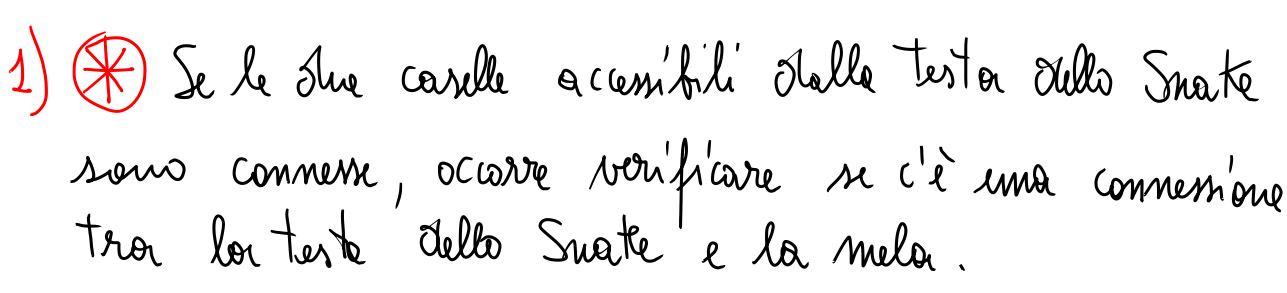 1) * Se le due caselle accessibili dalla testa dello Snake
sono connesse, occorre verificare se c'è una connessione
tra la testa dello Snake e la mela.